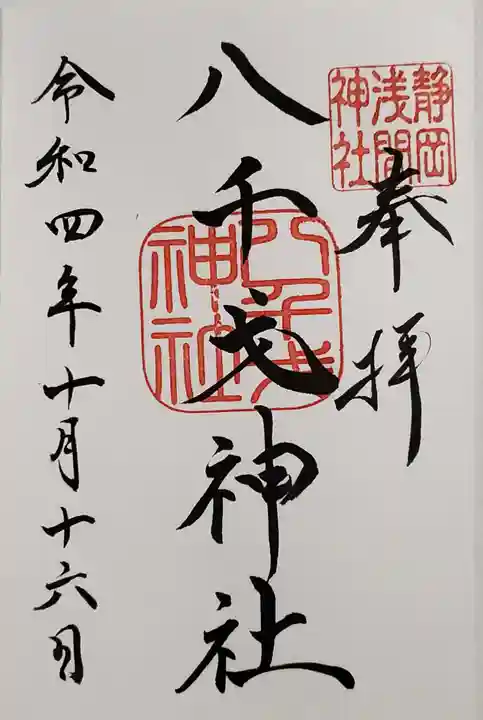 静岡
浅間
神社
奉拝
八千戈神社
八千戈
神社
令和四年十月十六日